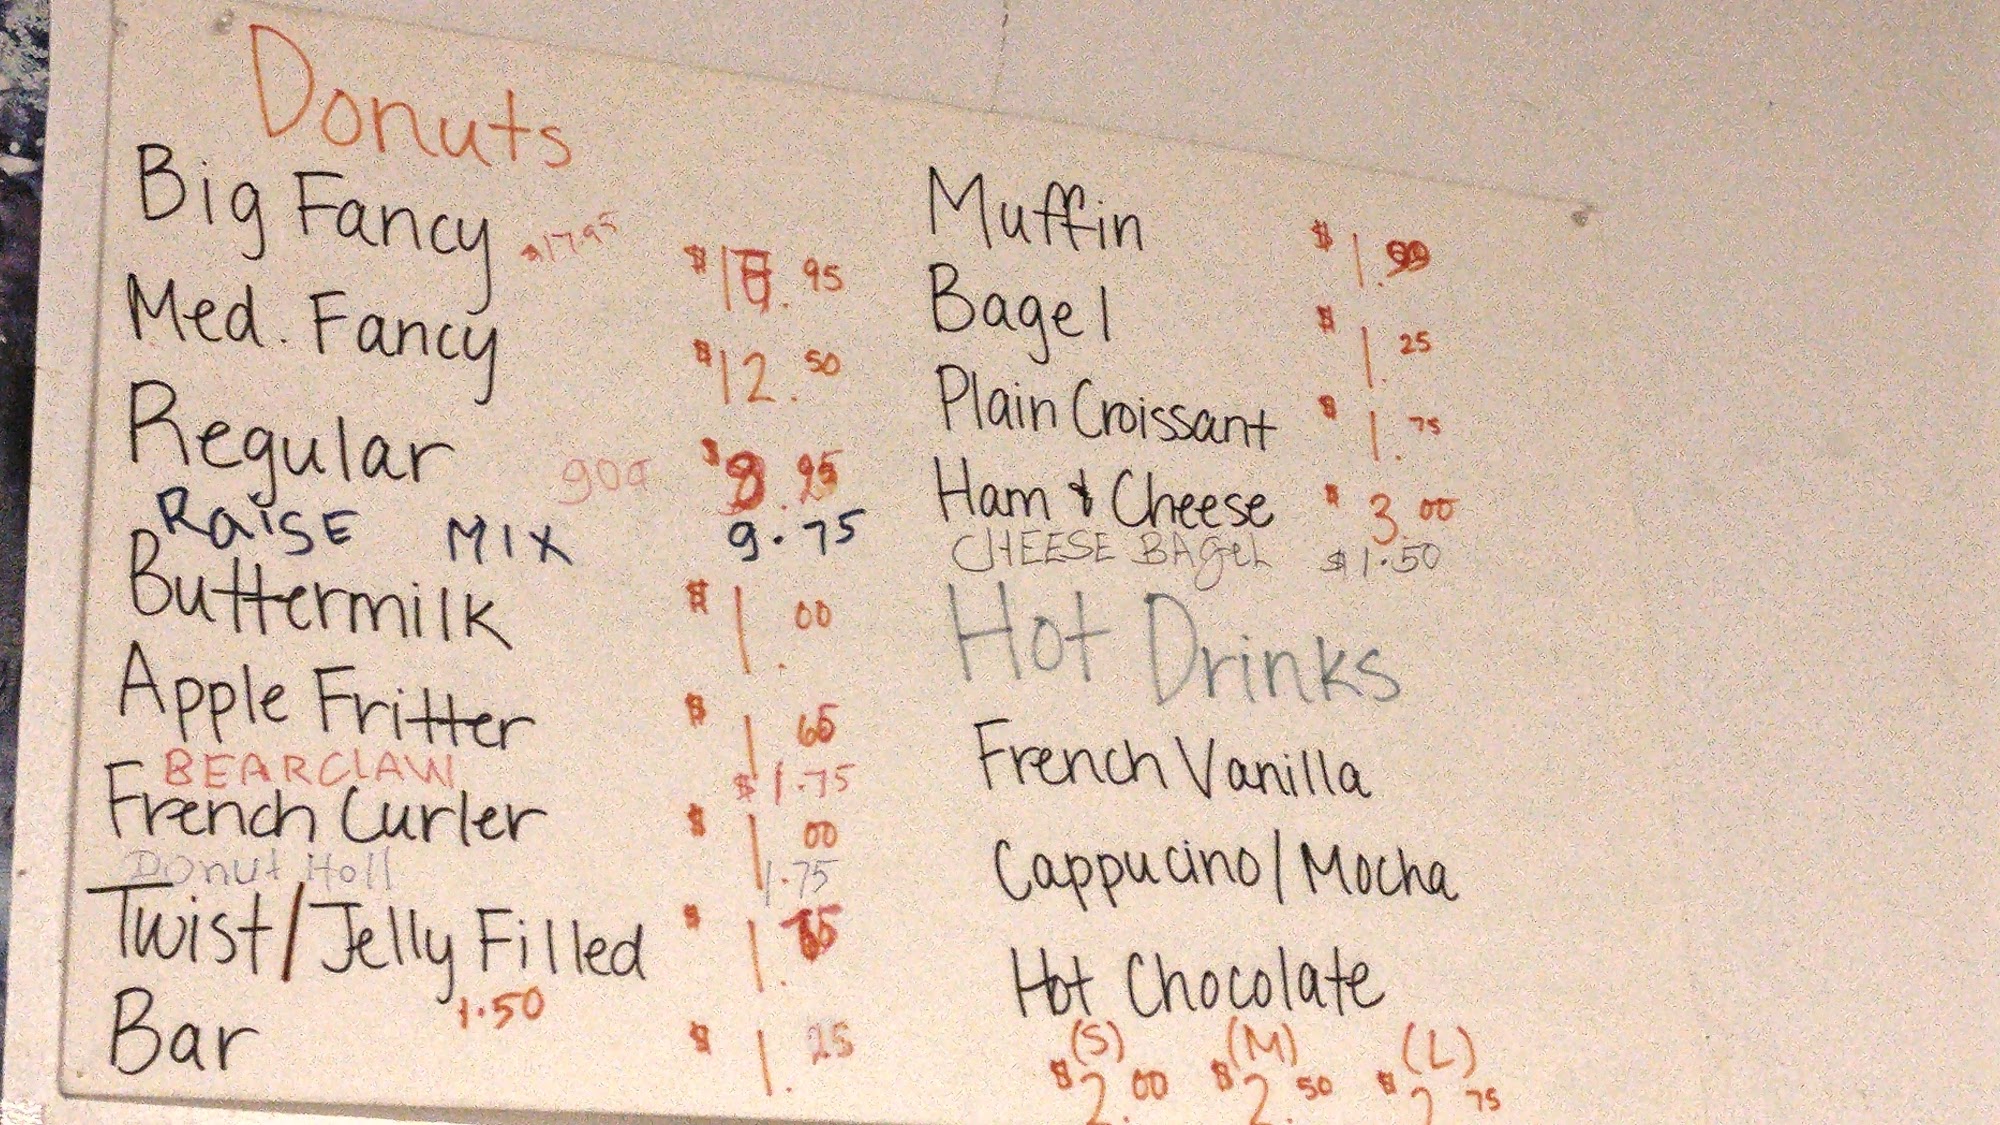 Donuts
Big Fancy $17.95 $17.95
Med. Fancy $12.50
Regular 90¢ $8.95
RAISE MIX 9.75
Buttermilk $1.00
Apple Fritter $1.65
BEARCLAW $1.75
French Curler $1.00
Donut Holl 1.75
Twist/Jelly Filled $1.
1.50
Bar $1.25
Muffin $1.99
Bagel $1.25
Plain Croissant $1.75
Ham & Cheese $3.00
CHEESE BAGEL $1.50
Hot Drinks
French Vanilla
Cappucino/Mocha
Hot Chocolate
(S) (M) (L)
$2.00 $2.50 $2.75